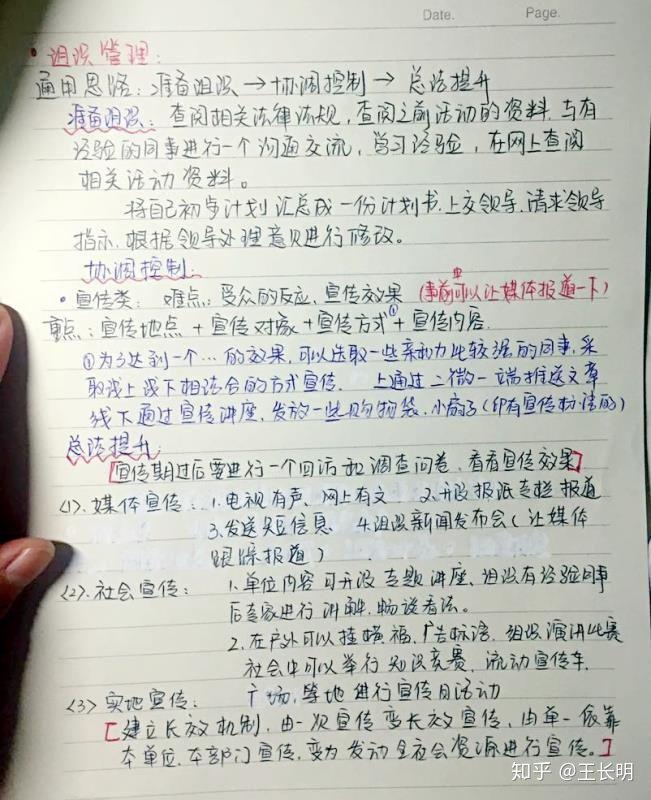 Date. Page.
·组织管理：
通用思路：准备组织→协调控制→总结提升
准备组织：查阅相关法律法规，查阅之前活动的资料，与有
经验的同事进行一个沟通交流，学习经验，在网上查阅
相关活动资料。
将自己初步计划汇总成一份计划书，上交领导，请求领导
指示，根据领导处理意见进行修改。
协调控制：
·宣传类：难点：受众的反应、宣传效果（事前中可以让媒体报道一下）
重点：宣传地点+宣传对象+宣传方式①+宣传内容.
①为了达到一个…的效果，可以选取一些亲和力比较强的同事，采
取线上线下相结合的方式宣传. 上通过二微一端推送文章
线下通过宣传讲座，发放一些购物袋、小扇子（印有宣传标语的）
总结提升：
[宣传期过后要进行一个回访和调查问卷，看看宣传效果]
〈1〉.媒体宣传：1.电视有声、网上有文 2.开设报纸专栏报道
3.发送短信息 4.组织新闻发布会（让媒体
跟踪报道）
〈2〉.社会宣传：1.单位内容可开设专题讲座、组织有经验同事
后专家进行讲解，畅谈看法。
2.在户外可以挂横幅、广告标语，组织演讲比赛
社会中可以举行知识竞赛、流动宣传车.
〈3〉实地宣传：广场，等地进行宣传日活动
[建立长效机制，由一次宣传变长效宣传，由单一依靠
本单位、本部门宣传，变为发动全社会资源进行宣传。]
知乎 @王长明